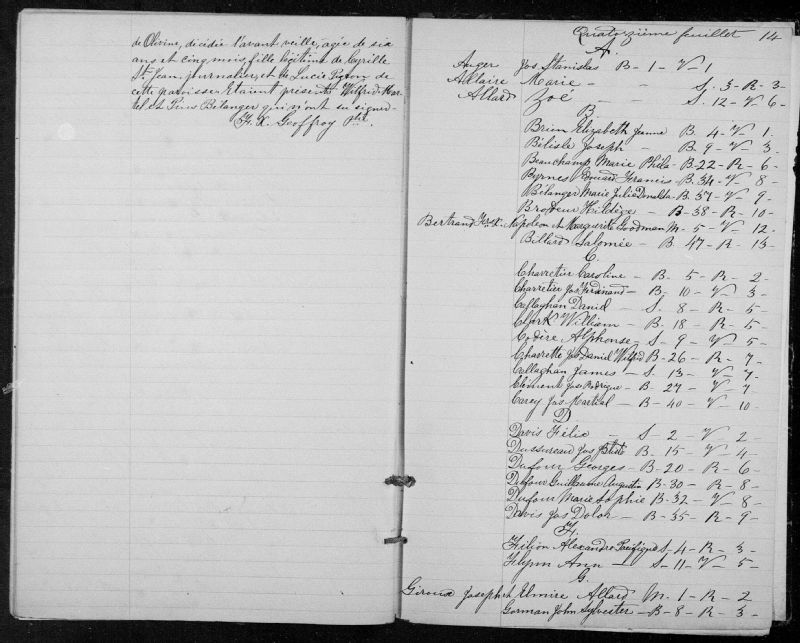 de Olivine, décédée l'avant veille, agée de six
ans et cinq mois, fille légitime de Cyrille
St. Jean, journalier, et de Lucie Pigeon de
cette paroisse. Etaient présents Wilfrid Mar-
tel et Pierre Bélanger qui n'ont su signer.
F. X. Geoffroy Ptre.
Quatorzième feuillet 14
A.
Auger Jos Stanislas B - 1 - V 1
Allaire Marie - - S. 3 - R - 3
Allard Zoé - - S. 12 - V 6 -
B.
Brien Elizabeth Jeanne B. 4 - V - 1
Bélisle Joseph - B - 9 - V - 3
Beauchamp Marie Phila - B - 22 - R - 6 -
Byrnes Edouard Francis - B. 34 - V - 8 -
Bélanger Marie Julie Donalda - B - 37 - V - 9 -
Brodeur Hildège - B - 38 - R - 10 -
Bertrand Frs. X. Napoléon et Marguerite Goodman M - 5 - V - 12 -
Billard Salomée - B 47 - R - 13 -
C.
Charretier Caroline - B - 5 - R - 2 -
Charretier Jos Ferdinand - B - 10 - V - 3 -
Callaghan Daniel - S. 8 - R - 5 -
Clark William - B - 18 - R - 5 -
Codère Alphonse - S - 9 - V - 5 -
Charrette Jos Daniel Wilfrid B - 26 - R - 7 -
Callaghan James - S - 13 - V - 7 -
Clément Jos Rodrigue - B - 27 - V - 7 -
Carey Jos Martial - B - 40 - V - 10 -
D
Davis Félix - S - 2 - V - 2 -
Dussureau Jos Btiste B - 15 - V - 4 -
Dufour Georges - B - 20 - R - 6 -
Dufour Guillaume Augustin B - 30 - R - 8 -
Dufour Marie Sophie B - 32 - V - 8 -
Davis Jos Dolor - B - 35 - R - 9 -
F.
Filion Alexandre Pacifique S - 4 - R - 3 -
Ann - S - 11 - V - 5 -
G.
Giroux Joseph et Elmire Allard M. 1 - R - 2
Gorman John Sylvester - B - 8 - R - 3 -